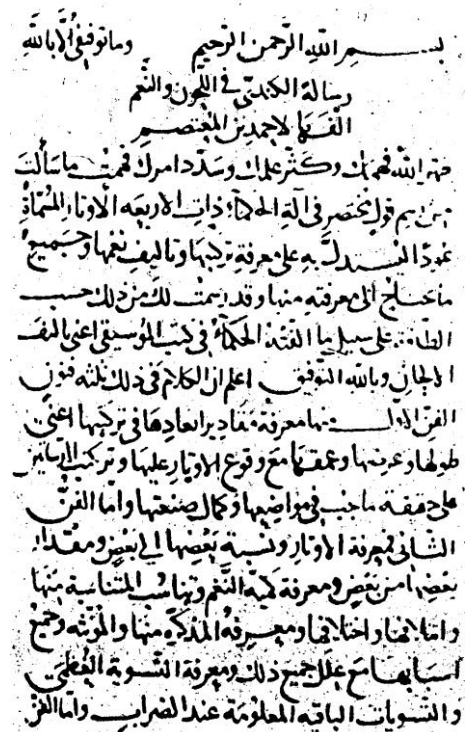 بسم الله الرحمن الرحيم وما توفيقي الا بالله
رسالة الكندي في اللحون والنغم
الفها لاحمد بن المعتصم
الله فهمك وكثر علمك وسدد امرك فهمت ما سألت
من رسم قول مختصر في آلة الحكماء ذات الاربعة الاوتار المسماة
عودا ليستدل به على معرفة تركيبها وتاليف نغمها وجميع
ما يحتاج الى معرفته منها وقد رسمت لك من ذلك حسب
الطاقة على سبيل ما الفته الحكماء في كتب الموسيقى اعني تاليف
الالحان وبالله التوفيق اعلم ان الكلام في ذلك ثلثة فنون
الفن الاول منها معرفة مقادير ابعادها في تركيبها اعني
طولها وعرضها وعمقها مع وقوع الاوتار عليها وتركيب الدساتين
على حقيقة ما يجب في مواضعها وكمال صنعتها واما الفن
الثاني فمعرفة الاوتار ونسبة بعضها الى بعض ومقدار
بعضها من بعض ومعرفة كمية النغم وتناسب المتناسبة منها
واتفاقها واختلافها ومعرفة المذكرة منها والمؤنثة وجميع
اسبابها مع علل جميع ذلك ومعرفة التسوية العظمى
والتسويات الباقية المعلومة عند الضراب واما الفن